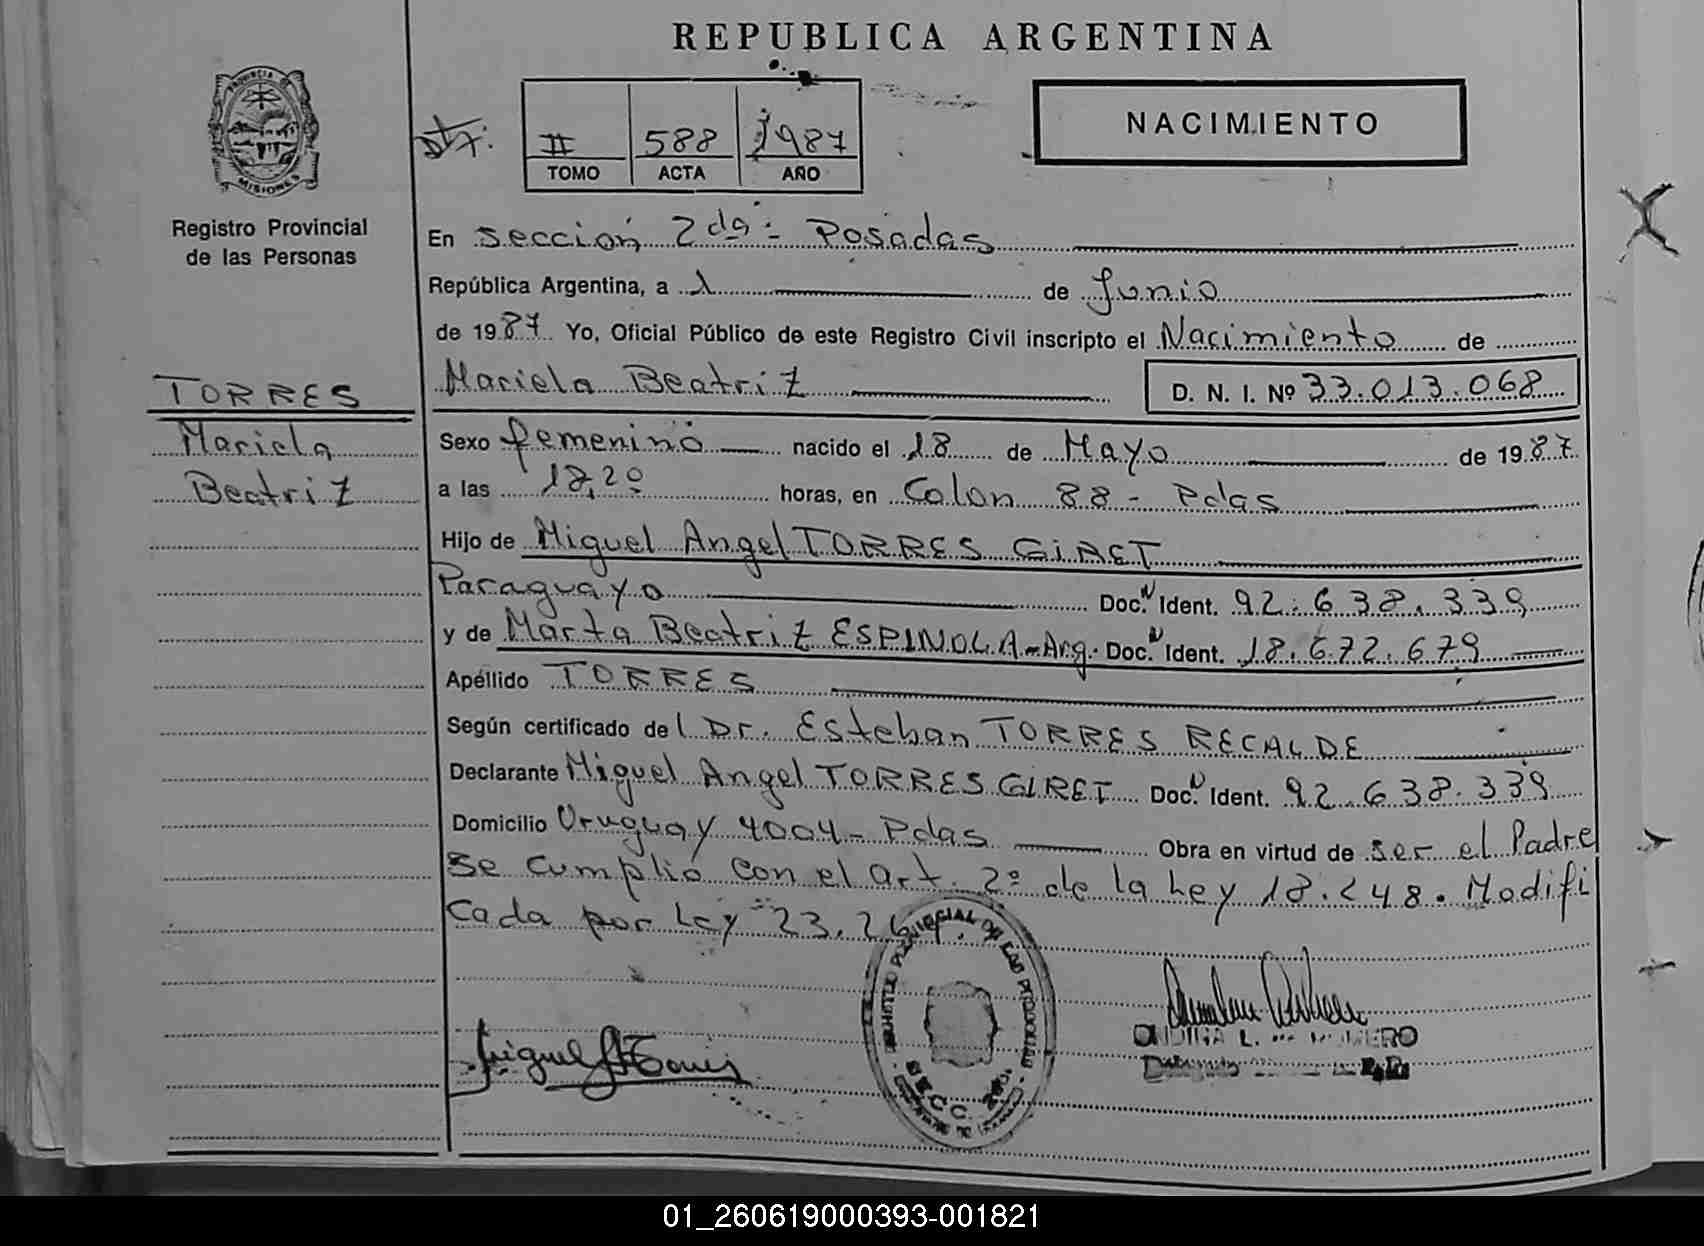 REPUBLICA ARGENTINA
PROVINCIA DE
MISIONES
Registro Provincial
de las Personas
# 588 1987
TOMO ACTA AÑO
NACIMIENTO
En sección 2da- Posadas
República Argentina, a 1 de Junio
de 1987 Yo, Oficial Público de este Registro Civil inscripto el Nacimiento de
Mariela Beatriz D. N. I. Nº 33.013.068
TORRES
Mariela
Beatriz
Sexo femenino nacido el 18 de Mayo de 1987
a las 18,20 horas, en Colon 88 - Pdas
Hijo de Miguel Angel TORRES GIRET
Paraguayo Doc. N Ident. 92.638.339
y de Marta Beatriz ESPINOLA - Arg. Doc. N Ident. 18.672.679
Apéllido TORRES
Según certificado del Dr. Esteban TORRES RECALDE
Declarante Miguel Angel TORRES GIRET Doc. N Ident. 92.638.339
Domicilio Uruguay 4004 - Pdas Obra en virtud de ser el Padre
Se cumplió con el art. 2º de la Ley 18.248. Modifi
cada por Ley 23.264.
SECC.
01_260619000393-001821